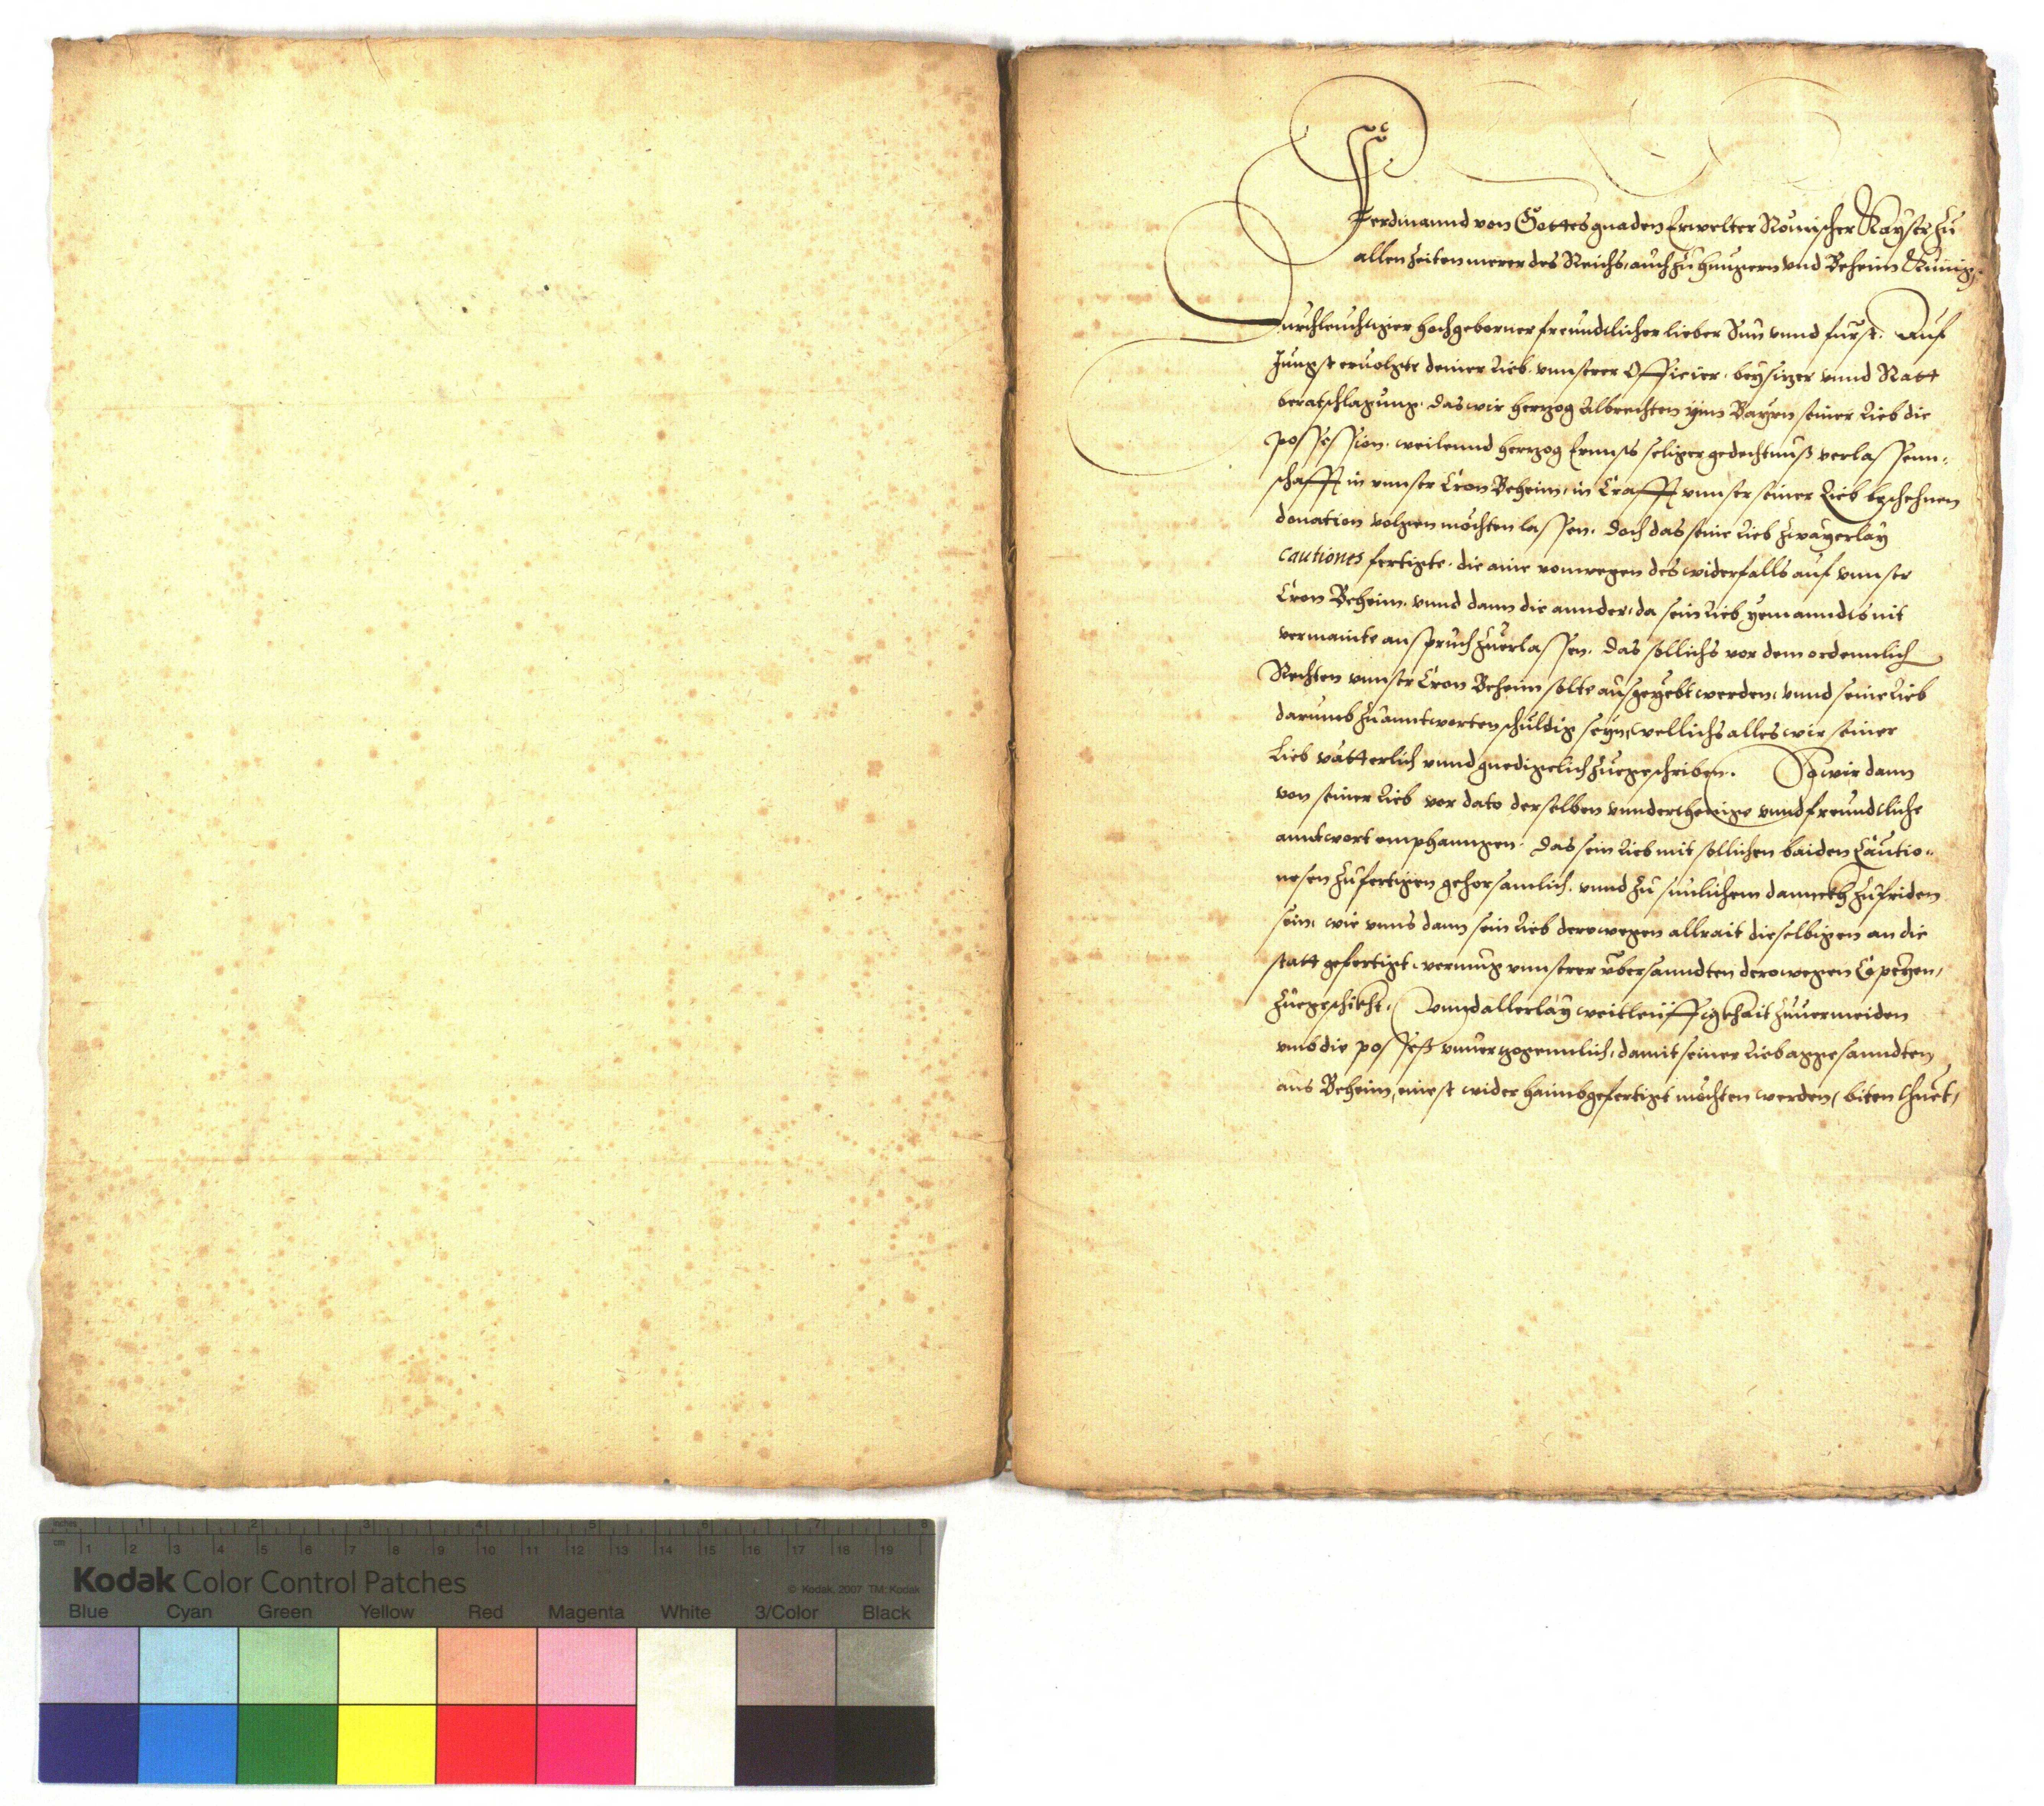 Ferdinannd von Gottes gnaden Erwelter Römischer Kayser zu
allen zeiten merer des Reichs, auch zu Hungern vnd Beheim Kunig,
Durchleuchtiger hochgeborner freundtlicher lieber Sun vnnd furst. Auf
Jungst eruolgte deiner Lieb, vnnserer Officier, beysitzer vnnd Rätt
beratschlagung, das wir hertzog Albrechten inn Bayrn seiner Lieb die
possession, weilennd hertzog Ernnsts seliger gedechtnuß verlassenn-
schafft in vnnser Cron Beheim, in Crafft vnnser seiner Lieb beschehnen
donation volgen möchten lassen, doch das seine Lieb zwayerlay
cautiones fertigte, die aine vonwegen des widerfalls auf vnnser
Cron Beheim, vnnd dann die annder, da sein Lieb yemanndts mit
vermainte anspruch zuerlassen, das sollichs vor dem ordennlich
Rechten vnnser Cron Beheim solte ausgeyebt werden, vnnd seine Lieb
darumb zuanntworten schuldig seyn, wellichs alles wir seiner
Lieb vatterlich vnnd gnedigelich zuegeschriben. So wir dann
von seiner Lieb vor dato derselben vnnderthenige vnnd freundtliche
anntwort emphanngen, das sein Lieb mit sollichen baiden Cautio-
nesen zufertigen gehorsamlich, vnnd zu sunlichem dannckh zufriden
sein, wie vnns dann sein Lieb derowegen allrait dieselbigen an die
statt gefertigt, vermüg vnnserer vbersanndten derowegen Copeyen,
zuegeschikht, Vnnd allerlay weitleüffigkhait zuuermeiden
vmb die possess vnuerzogennlich, damit seiner Lieb abgesanndten
aus Beheim, einest wider haimbgefertigt möchten werden, biten thuet,
Kodak Color Control Patches
© Kodak, 2007 TM: Kodak
Blue Cyan Green Yellow Red Magenta White 3/Color Black